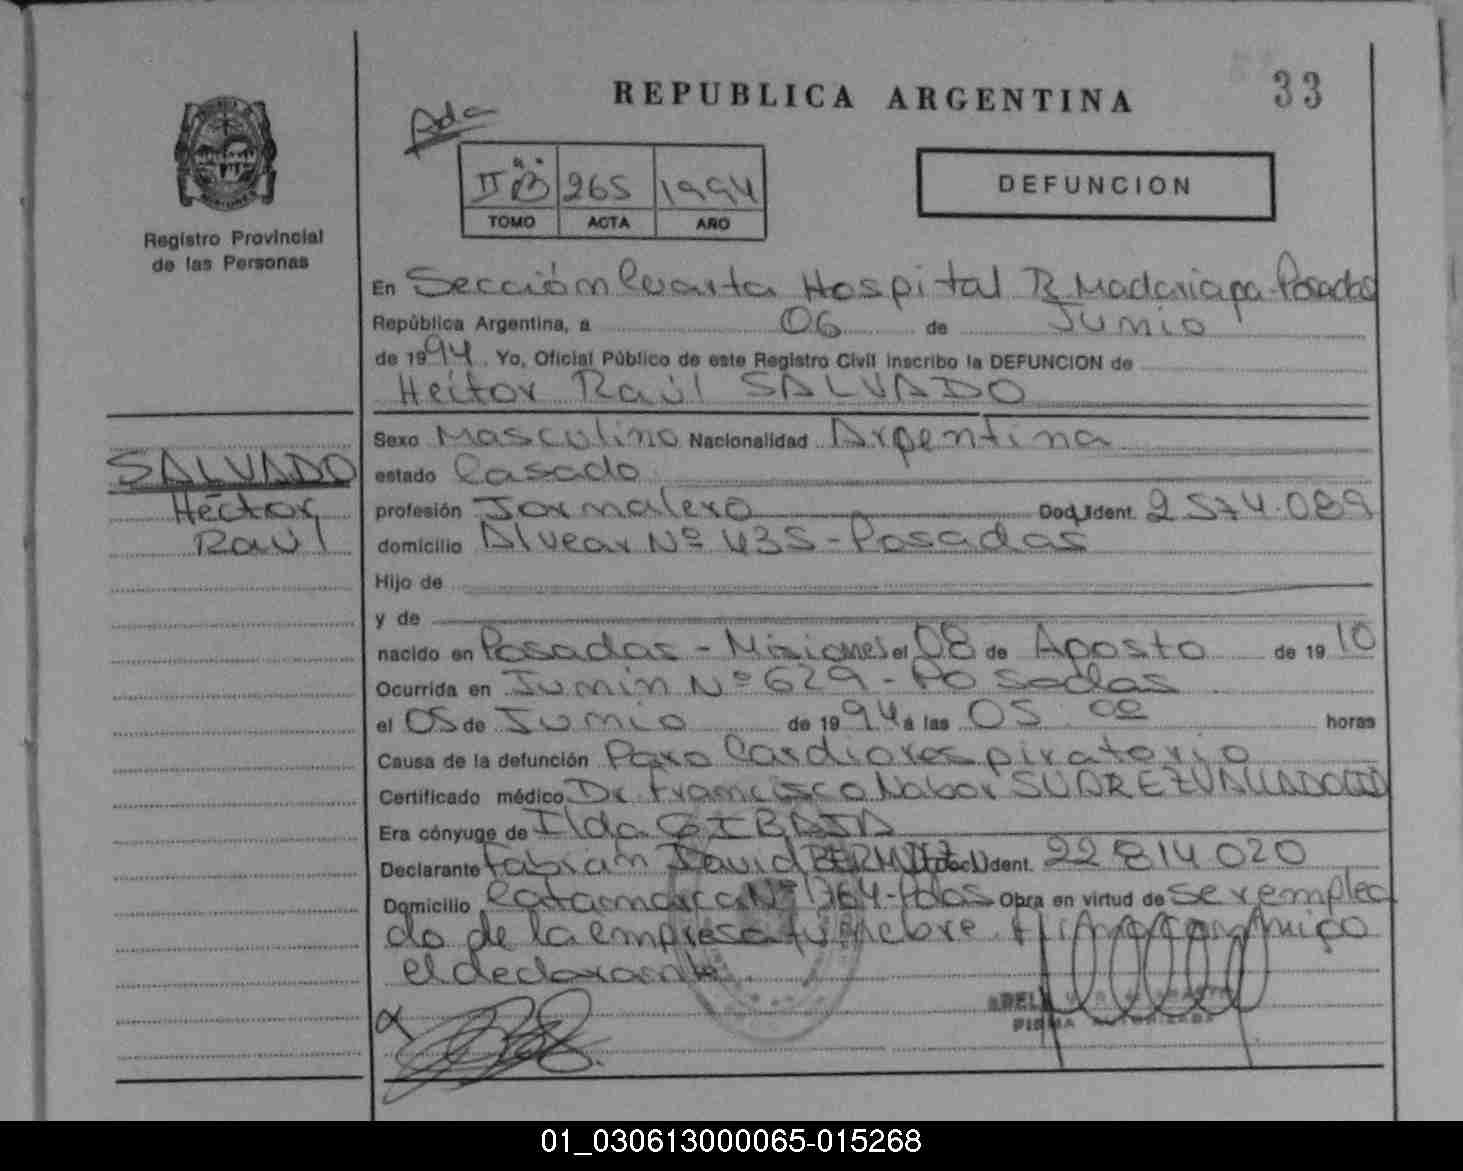 33
REPUBLICA ARGENTINA
Ada
II "B" 265 1994
TOMO ACTA AÑO
DEFUNCION
Registro Provincial
de las Personas
En Sección Cuarta Hospital R. Madariaga-Posadas
República Argentina, a 06 de Junio
de 1994. Yo, Oficial Público de este Registro Civil inscribo la DEFUNCION de
Héctor Raúl SALVADO
SALVADO
Héctor
Raúl
Sexo Masculino Nacionalidad Argentina
estado Casado
profesión Jornalero Doc. Ident. 2.574.089
domicilio Alvear Nº 435-Posadas
Hijo de
y de
nacido en Posadas - Misiones el 08 de Agosto de 1910
Ocurrida en Junin Nº 629-Posadas
el 05 de Junio de 1994 á las 05 00 horas
Causa de la defunción Paro Cardiorespiratorio
Certificado médico Dr. Francisco Nabor SUAREZ
Era cónyuge de Ilda GIBAJA
Declarante Fabian David Doc. Ident. 22 814 020
Domicilio Catamarca Nº 1764-Pdas Obra en virtud de ser emplea
do de la empresa fúnebre. Firma conmigo
el declarante
FIRMA AUTORIZADA
01_030613000065-015268